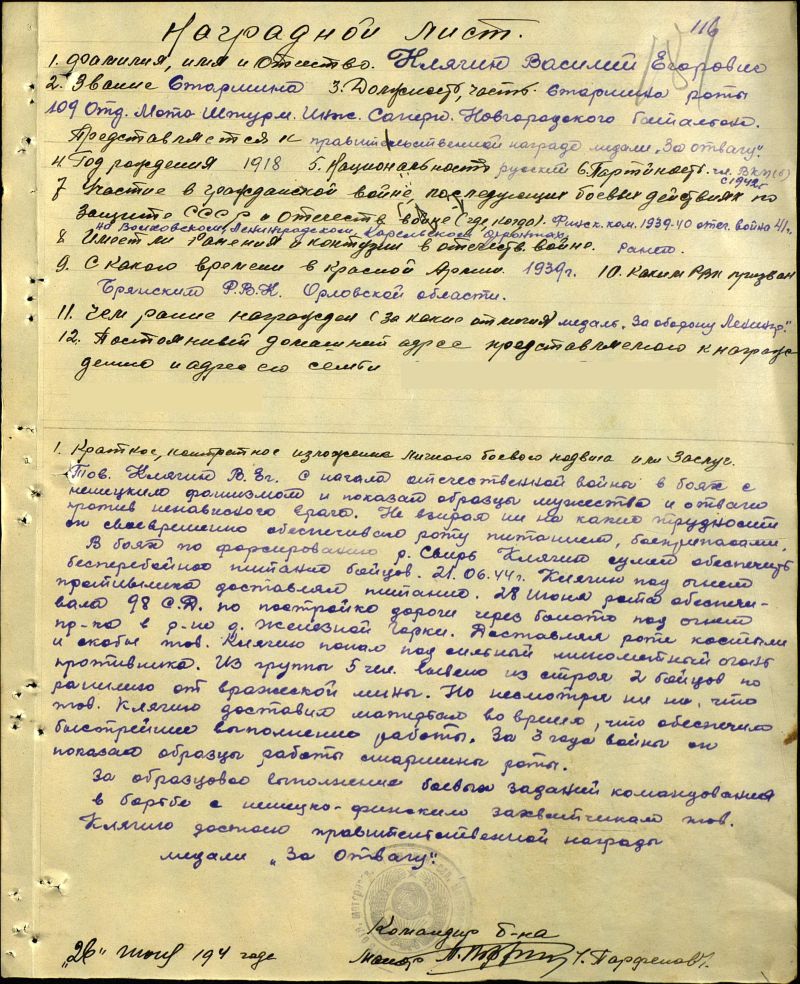 116
Наградной лист.
1. Фамилия, имя и Отчество. Клягин Василий Егорович
2. Звание Старшина 3. Должность, часть Старшина роты
109 Отд. Мото Штурм. Инж. Саперн. Новгородского батальона.
Представляется к правительственной награде медали „За отвагу".
4. Год рождения 1918 5. Национальность русский 6. Партийность. чл. ВКП(б)
с 1942г
7 Участие в гражданской войне, последующих боевых действиях по
защите СССР и Отечеств войне (где, когда). Финск. ком. 1939-40 отеч. война 41г.
на Волховском, Ленинградском, Карельском фронтах.
8 Имеет ли ранения и контузии в отечеств. войне. ранен.
9. С какого времени в Красной Армии 1939г. 10. Каким РВК призван
Брянским Р.В.К. Орловской области.
11. Чем ранее награжден (за какие отличия) медаль „За оборону Ленингр."
12. Постоянный домашний адрес представляемого к награж
дению и адрес его семьи
1. Краткое, конкретное изложение личного боевого подвига или Заслуг.
Тов. Клягин В. Ег. с начала отечественной войны в боях с
немецким фашизмом и показал образцы мужества и отваги
против ненависного врага. Не взирая ни на какие трудности
он своевременно обеспечивал роту питанием, боеприпасами.
В боях по форсированию р. Свирь Клягин сумел обеспечить
бесперебойно питание бойцов. 21.06.44г. Клягин под огнем
противника доставлял питание. 28 июня рота обеспечи-
вала 98 С.Д. по постройке дороги через болото под огнем
пр-ка в р-не д. Железной Горки. Доставляя роте костыли
и скобы тов. Клягин попал под сильный минометный огонь
противника. Из группы 5 чел. вывело из строя 2 бойцов по
ранению от вражеской мины. Но несмотря ни на, что
тов. Клягин доставил материал во время, что обеспечило
быстрейшее выполнение работы. За 3 года войны он
показал образцы работы старшины роты.
За образцовое выполнение боевых заданий командования
в борьбе с немецко-финскими захватчиками тов.
Клягин достоин правительственной награды
медали „За Отвагу".
Командир б-на
„26" июня 194 года майор /Парфенов/.